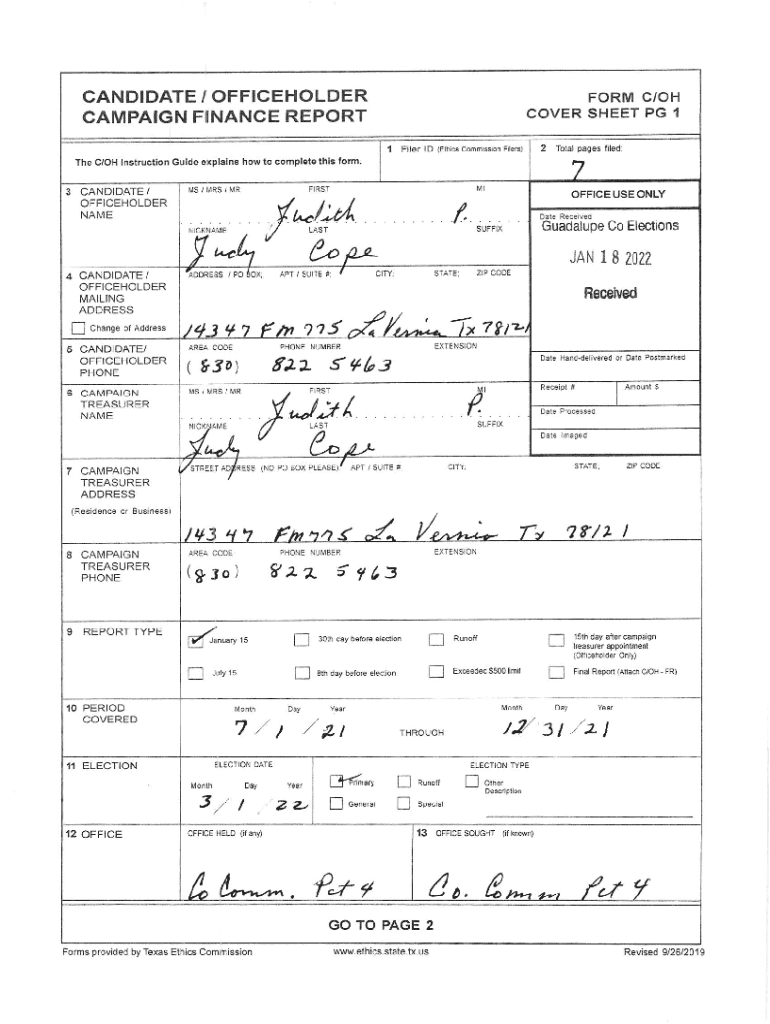 CANDIDATE / OFFICEHOLDER
CAMPAIGN FINANCE REPORT
FORM C/OH
COVER SHEET PG 1
The C/OH Instruction Guide explains how to complete this form.
1 Filer ID (Ethics Commission Filers)
2 Total pages filed:
7
3 CANDIDATE / OFFICEHOLDER NAME
MS / MRS / MR FIRST MI
Judith P.
NICKNAME LAST SUFFIX
Judy Cope
OFFICE USE ONLY
Date Received
Guadalupe Co Elections
JAN 18 2022
Received
4 CANDIDATE / OFFICEHOLDER MAILING ADDRESS
Change of Address
ADDRESS / PO BOX; APT / SUITE #; CITY; STATE; ZIP CODE
14347 FM 775 La Vernia Tx 78121
5 CANDIDATE/ OFFICEHOLDER PHONE
AREA CODE PHONE NUMBER EXTENSION
(830) 822 5463
Date Hand-delivered or Date Postmarked
6 CAMPAIGN TREASURER NAME
MS / MRS / MR FIRST MI
Judith P.
NICKNAME LAST SUFFIX
Judy Cope
Receipt # Amount $
Date Processed
Date Imaged
7 CAMPAIGN TREASURER ADDRESS
(Residence or Business)
STREET ADDRESS (NO PO BOX PLEASE); APT / SUITE #; CITY; STATE; ZIP CODE
14347 Fm775 La Vernia Tx 78121
8 CAMPAIGN TREASURER PHONE
AREA CODE PHONE NUMBER EXTENSION
(830) 822 5463
9 REPORT TYPE
January 15 30th day before election Runoff 15th day after campaign treasurer appointment (Officeholder Only)
July 15 8th day before election Exceeded $500 limit Final Report (Attach C/OH - FR)
10 PERIOD COVERED
Month Day Year Month Day Year
7 / 1 / 21 THROUGH 12/ 31 / 21
11 ELECTION
ELECTION DATE ELECTION TYPE
Month Day Year
3 / 1 / 22
Primary Runoff Other Description
General Special
12 OFFICE
OFFICE HELD (if any)
Co Comm. Pct 4
13 OFFICE SOUGHT (if known)
Co. Comm Pct 4
GO TO PAGE 2
Forms provided by Texas Ethics Commission www.ethics.state.tx.us Revised 9/26/2019